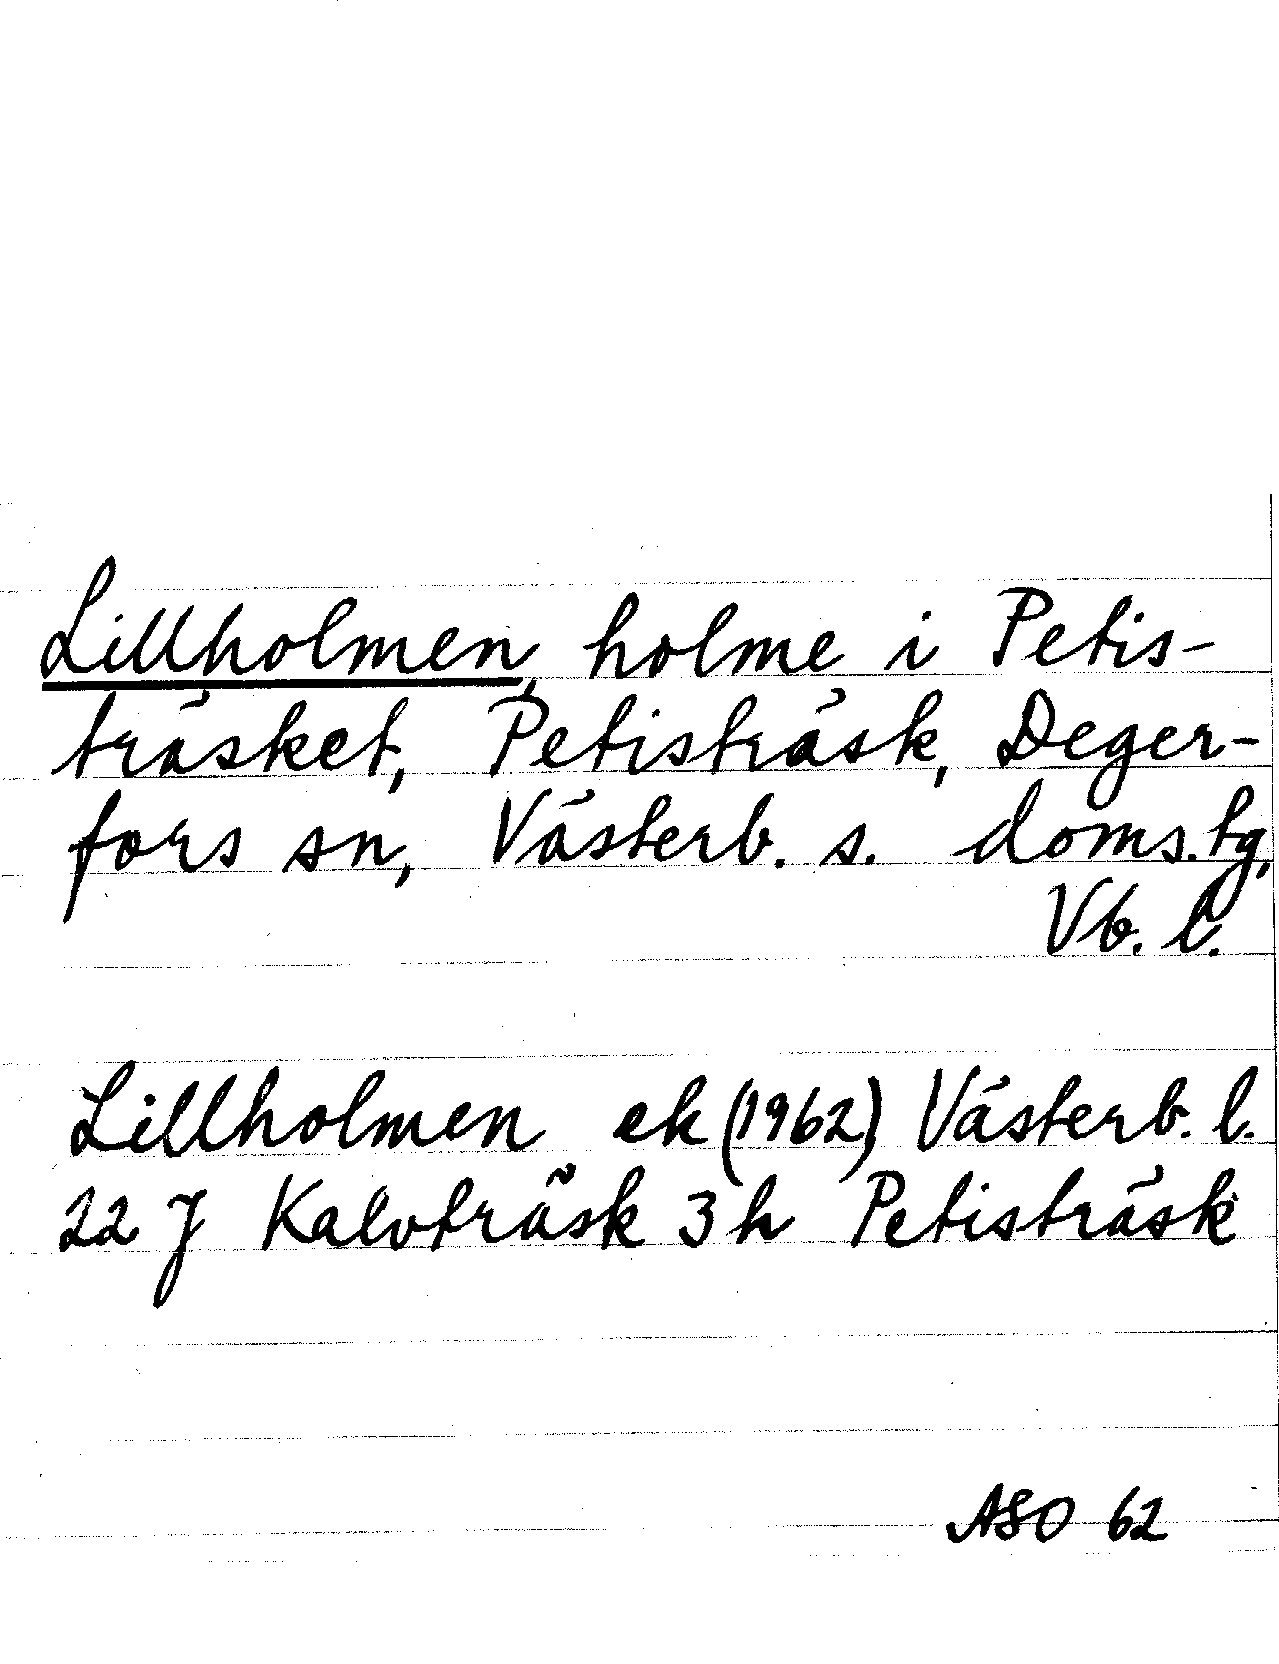 Lillholmen, holme i Petis-
träsket, Petisträsk, Deger-
fors sn, Västerb. s. doms.tg,
Vb. l.
Lillholmen ek (1962) Västerb. l.
22 J Kalvträsk 3 h Petisträsk
ASO 62